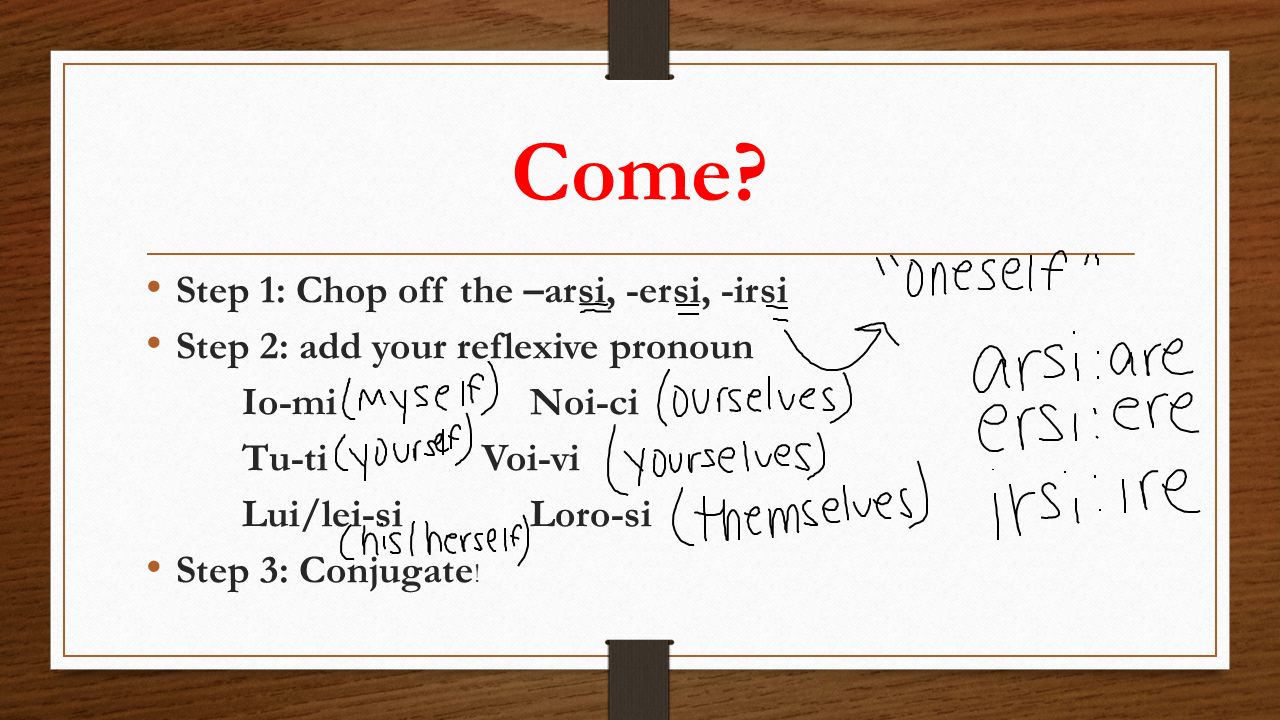 Come?
• Step 1: Chop off the –arsi, -ersi, -irsi
"oneself"
• Step 2: add your reflexive pronoun
Io-mi (myself) Noi-ci (ourselves)
Tu-ti (yourself) Voi-vi (yourselves)
Lui/lei-si Loro-si (themselves)
(his/herself)
• Step 3: Conjugate!
arsi: are
ersi: ere
irsi: ire